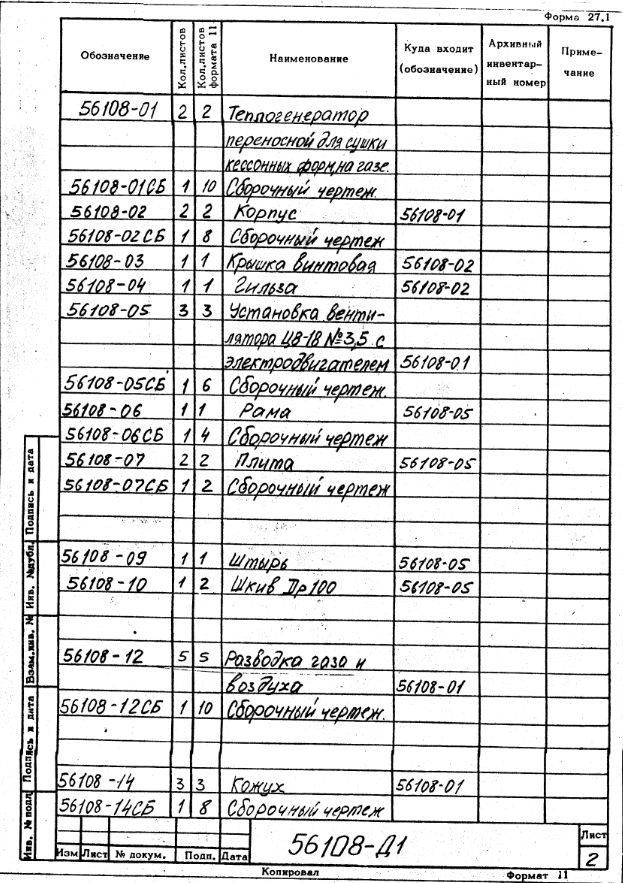 Форма 27.1
Обозначение Кол.листов Кол.листов формата 11 Наименование Куда входит (обозначение) Архивный инвентар-ный номер Приме-чание
56108-01 2 2 Теплогенератор
переносной для сушки
кессонных форм, на газе.
56108-01СБ 1 10 Сборочный чертеж.
56108-02 2 2 Корпус 56108-01
56108-02СБ 1 8 Сборочный чертеж
56108-03 1 1 Крышка винтовая 56108-02
56108-04 1 1 Гильза 56108-02
56108-05 3 3 Установка венти-
лятора Ц8-18 №3,5 с
электродвигателем 56108-01
56108-05СБ 1 6 Сборочный чертеж.
56108-06 1 1 Рама 56108-05
56108-06СБ 1 4 Сборочный чертеж
56108-07 2 2 Плита 56108-05
56108-07СБ 1 2 Сборочный чертеж
56108-09 1 1 Штырь 56108-05
56108-10 1 2 Шкив Dр100 56108-05
56108-12 5 5 Разводка газа и
воздуха 56108-01
56108-12СБ 1 10 Сборочный чертеж.
56108-14 3 3 Кожух 56108-01
56108-14СБ 1 8 Сборочный чертеж
Подпись и дата
Инв. №дубл.
Взам.инв. №
Подпись и дата
Инв. № подл
Изм Лист № докум. Подп. Дата
56108-Д1
Лист
2
Копировал Формат 11